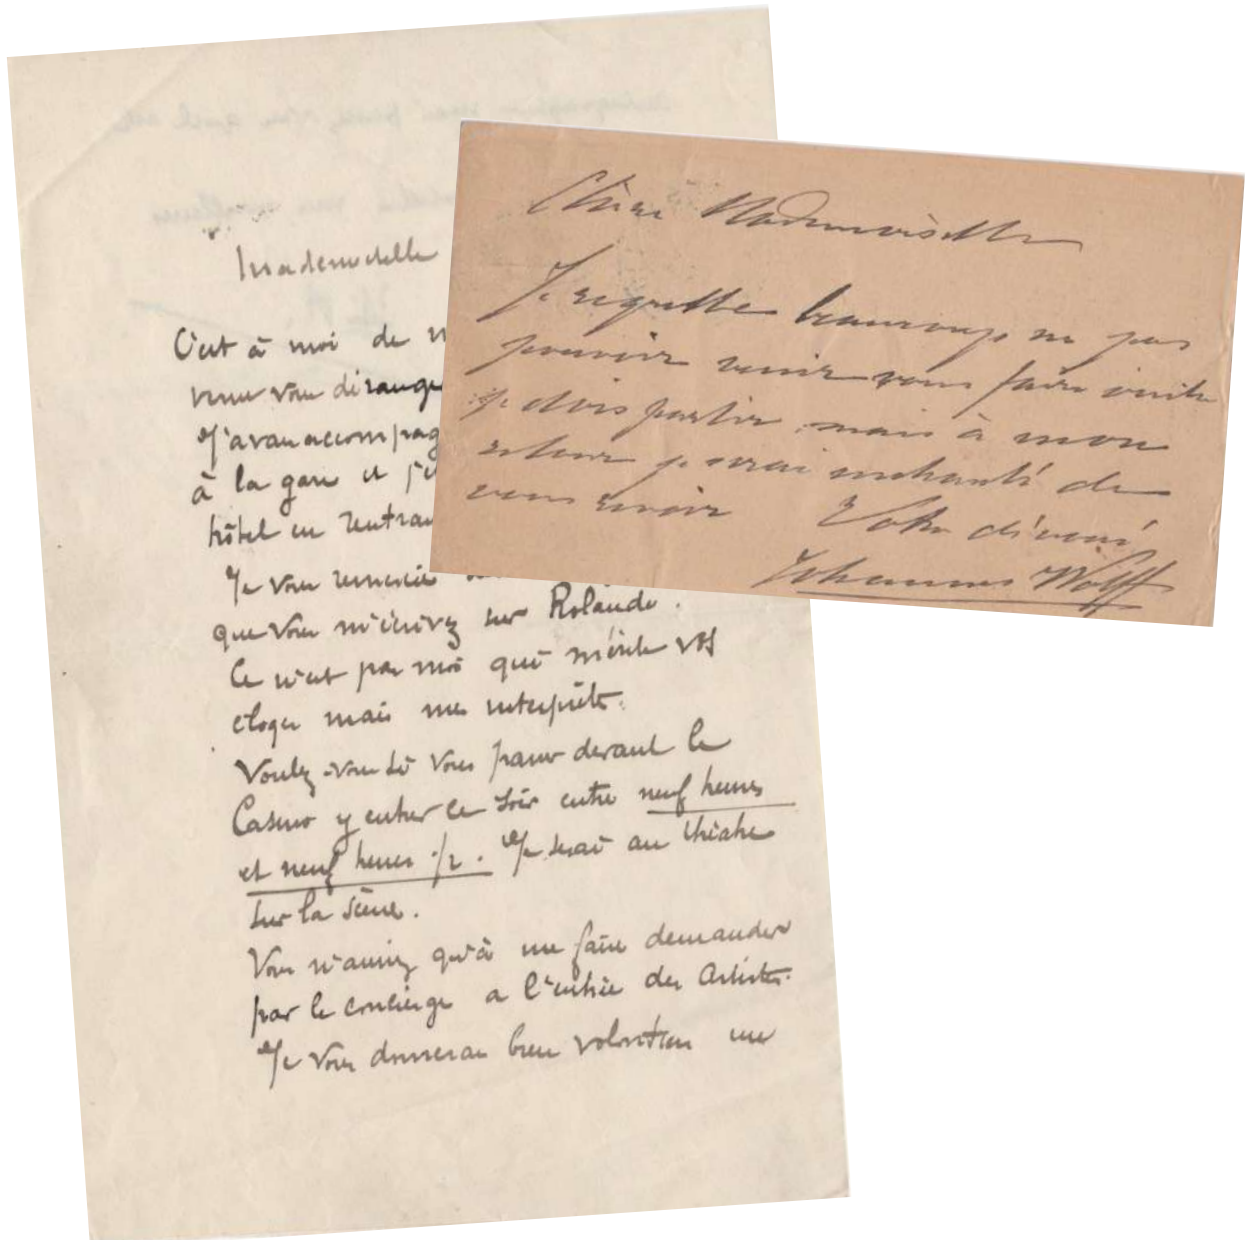 Mademoiselle
C'est à moi de
venu vous déranger
J'avais accompag
à la gare et j'e
hôtel en rentran
Je vous remercie
que vous m'écrivez sur Rolande.
Ce n'est pas moi qui mérite vos
éloges mais mes interprètes.
Voulez-vous si vous passez devant le
Casino y entrer ce soir entre neuf heures
et neuf heures 1/2. Je serai au théâtre
sur la scène.
Vous n'aurez qu'à me faire demander
par le concierge a l'entrée des Artistes.
Je vous donnerai bien volontiers une
Chère Mademoiselle
Je regrette beaucoup ne pas
pouvoir venir vous faire visite
je dois partir mais à mon
retour je serai enchanté de
vous revoir Votre dévoué
Johannes Wolff